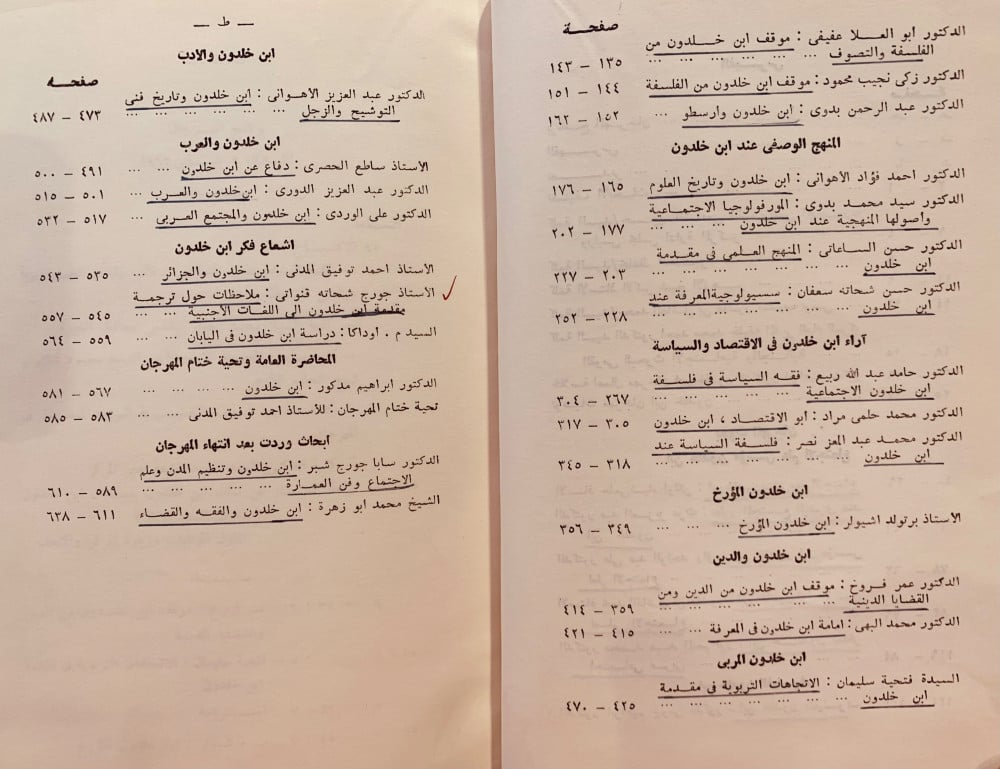 صفحـة
الدكتور ابو العـلا عفيفى : موقف ابن خـلدون من
الفلسفة والتصوف ... ... ... ... ... ... ١٣٥ – ١٤٣
الدكتور زكى نجيب محمود : موقف ابن خلدون من الفلسفة ١٤٤ – ١٥١
الدكتور عبد الرحمن بدوى : ابن خلدون وارسطو ... ... ١٥٢ – ١٦٢
المنهج الوصفى عند ابن خلدون
الدكتور احمد فؤاد الأهوانى : ابن خلدون وتاريخ العلوم ١٦٥ – ١٧٦
الدكتور سيد محمد بدوى : المورفولوجيا الاجتماعية
واصولها المنهجية عند ابن خلدون ... ... ١٧٧ – ٢٠٢
الدكتور حسن الساعاتى : المنهج العلمى فى مقدمة
ابن خلدون ... ... ... ... ... ... ٢٠٣ – ٢٢٧
الدكتور حسن شحاته سعفان : سسيولوجية المعرفة عند
ابن خلدون ... ... ... ... ... ... ٢٢٨ – ٢٥٢
آراء ابن خلدون فى الاقتصاد والسياسة
الدكتور حامد عبد الله ربيع : فقه السياسة فى فلسفة
ابن خلدون الاجتماعية ... ... ... ... ٢٦٧ – ٣٠٤
الدكتور محمد حلمى مراد : ابو الاقتصـاد ، ابن خلدون ٣٠٥ – ٣١٧
الدكتور محمد عبد المعز نصر : فلسفة السياسة عند
ابن خلدون ... ... ... ... ... ... ٣١٨ – ٣٤٥
ابن خلدون المؤرخ
الأستاذ برتولد اشبولر : ابن خلدون المؤرخ ... ... ... ٣٤٩ – ٣٥٦
ابن خلدون والدين
الدكتور عمر فـروخ : موقف ابن خلدون من الدين ومن
القضايا الدينية ... ... ... ... ... ... ٣٥٩ – ٤١٤
الدكتور محمد البهى : امامة ابن خلدون فى المعرفة ... ... ٤١٥ – ٤٢١
ابن خلدون المربى
السيدة فتحية سليمان : الاتجاهات التربوية فى مقدمة
ابن خلدون ... ... ... ... ... ... ٤٢٥ – ٤٧٠
— ط —
ابن خلدون والأدب
صفحـه
الدكتور عبد العزيز الأهوانى : ابن خلدون وتاريخ فنى
التوشيح والزجل ... ... ... ... ... ... ٤٧٣ – ٤٨٧
ابن خلدون والعرب
الأستاذ ساطع الحصرى : دفاع عن ابن خلدون ... ... ٤٩١ – ٥٠٠
الدكتور عبد العزيز الدورى : ابن خلدون والعرب ... ... ٥٠١ – ٥١٥
الدكتور على الوردى : ابن خلدون والمجتمع العربى ... ٥١٧ – ٥٣٢
اشعاع فكر ابن خلدون
الأستاذ احمد توفيق المدنى : ابن خلدون والجزائر ... ٥٣٥ – ٥٤٣
الأستاذ جورج شحاته قنواتى : ملاحظات حول ترجمة
مقدمة ابن خلدون الى اللغات الأجنبية ... ... ٥٤٥ – ٥٥٧
السيد م . اوداكا : دراسة ابن خلدون فى اليابان ... ... ٥٥٩ – ٥٦٤
المحاضرة العامة وتحية ختام المهرجان
الدكتور ابراهيم مدكور : ابن خلدون ... ... ... ... ٥٦٧ – ٥٨١
تحية ختام المهرجان : للأستاذ احمد توفيق المدنى ... ... ٥٨٣ – ٥٨٥
أبحاث وردت بعد انتهاء المهرجان
الدكتور سابا جورج شبر : ابن خلدون وتنظيم المدن وعلم
الاجتماع وفن العمارة ... ... ... ... ... ٥٨٩ – ٦١٠
الشيخ محمد ابو زهرة : ابن خلدون والفقه والقضاء ... ٦١١ – ٦٣٨